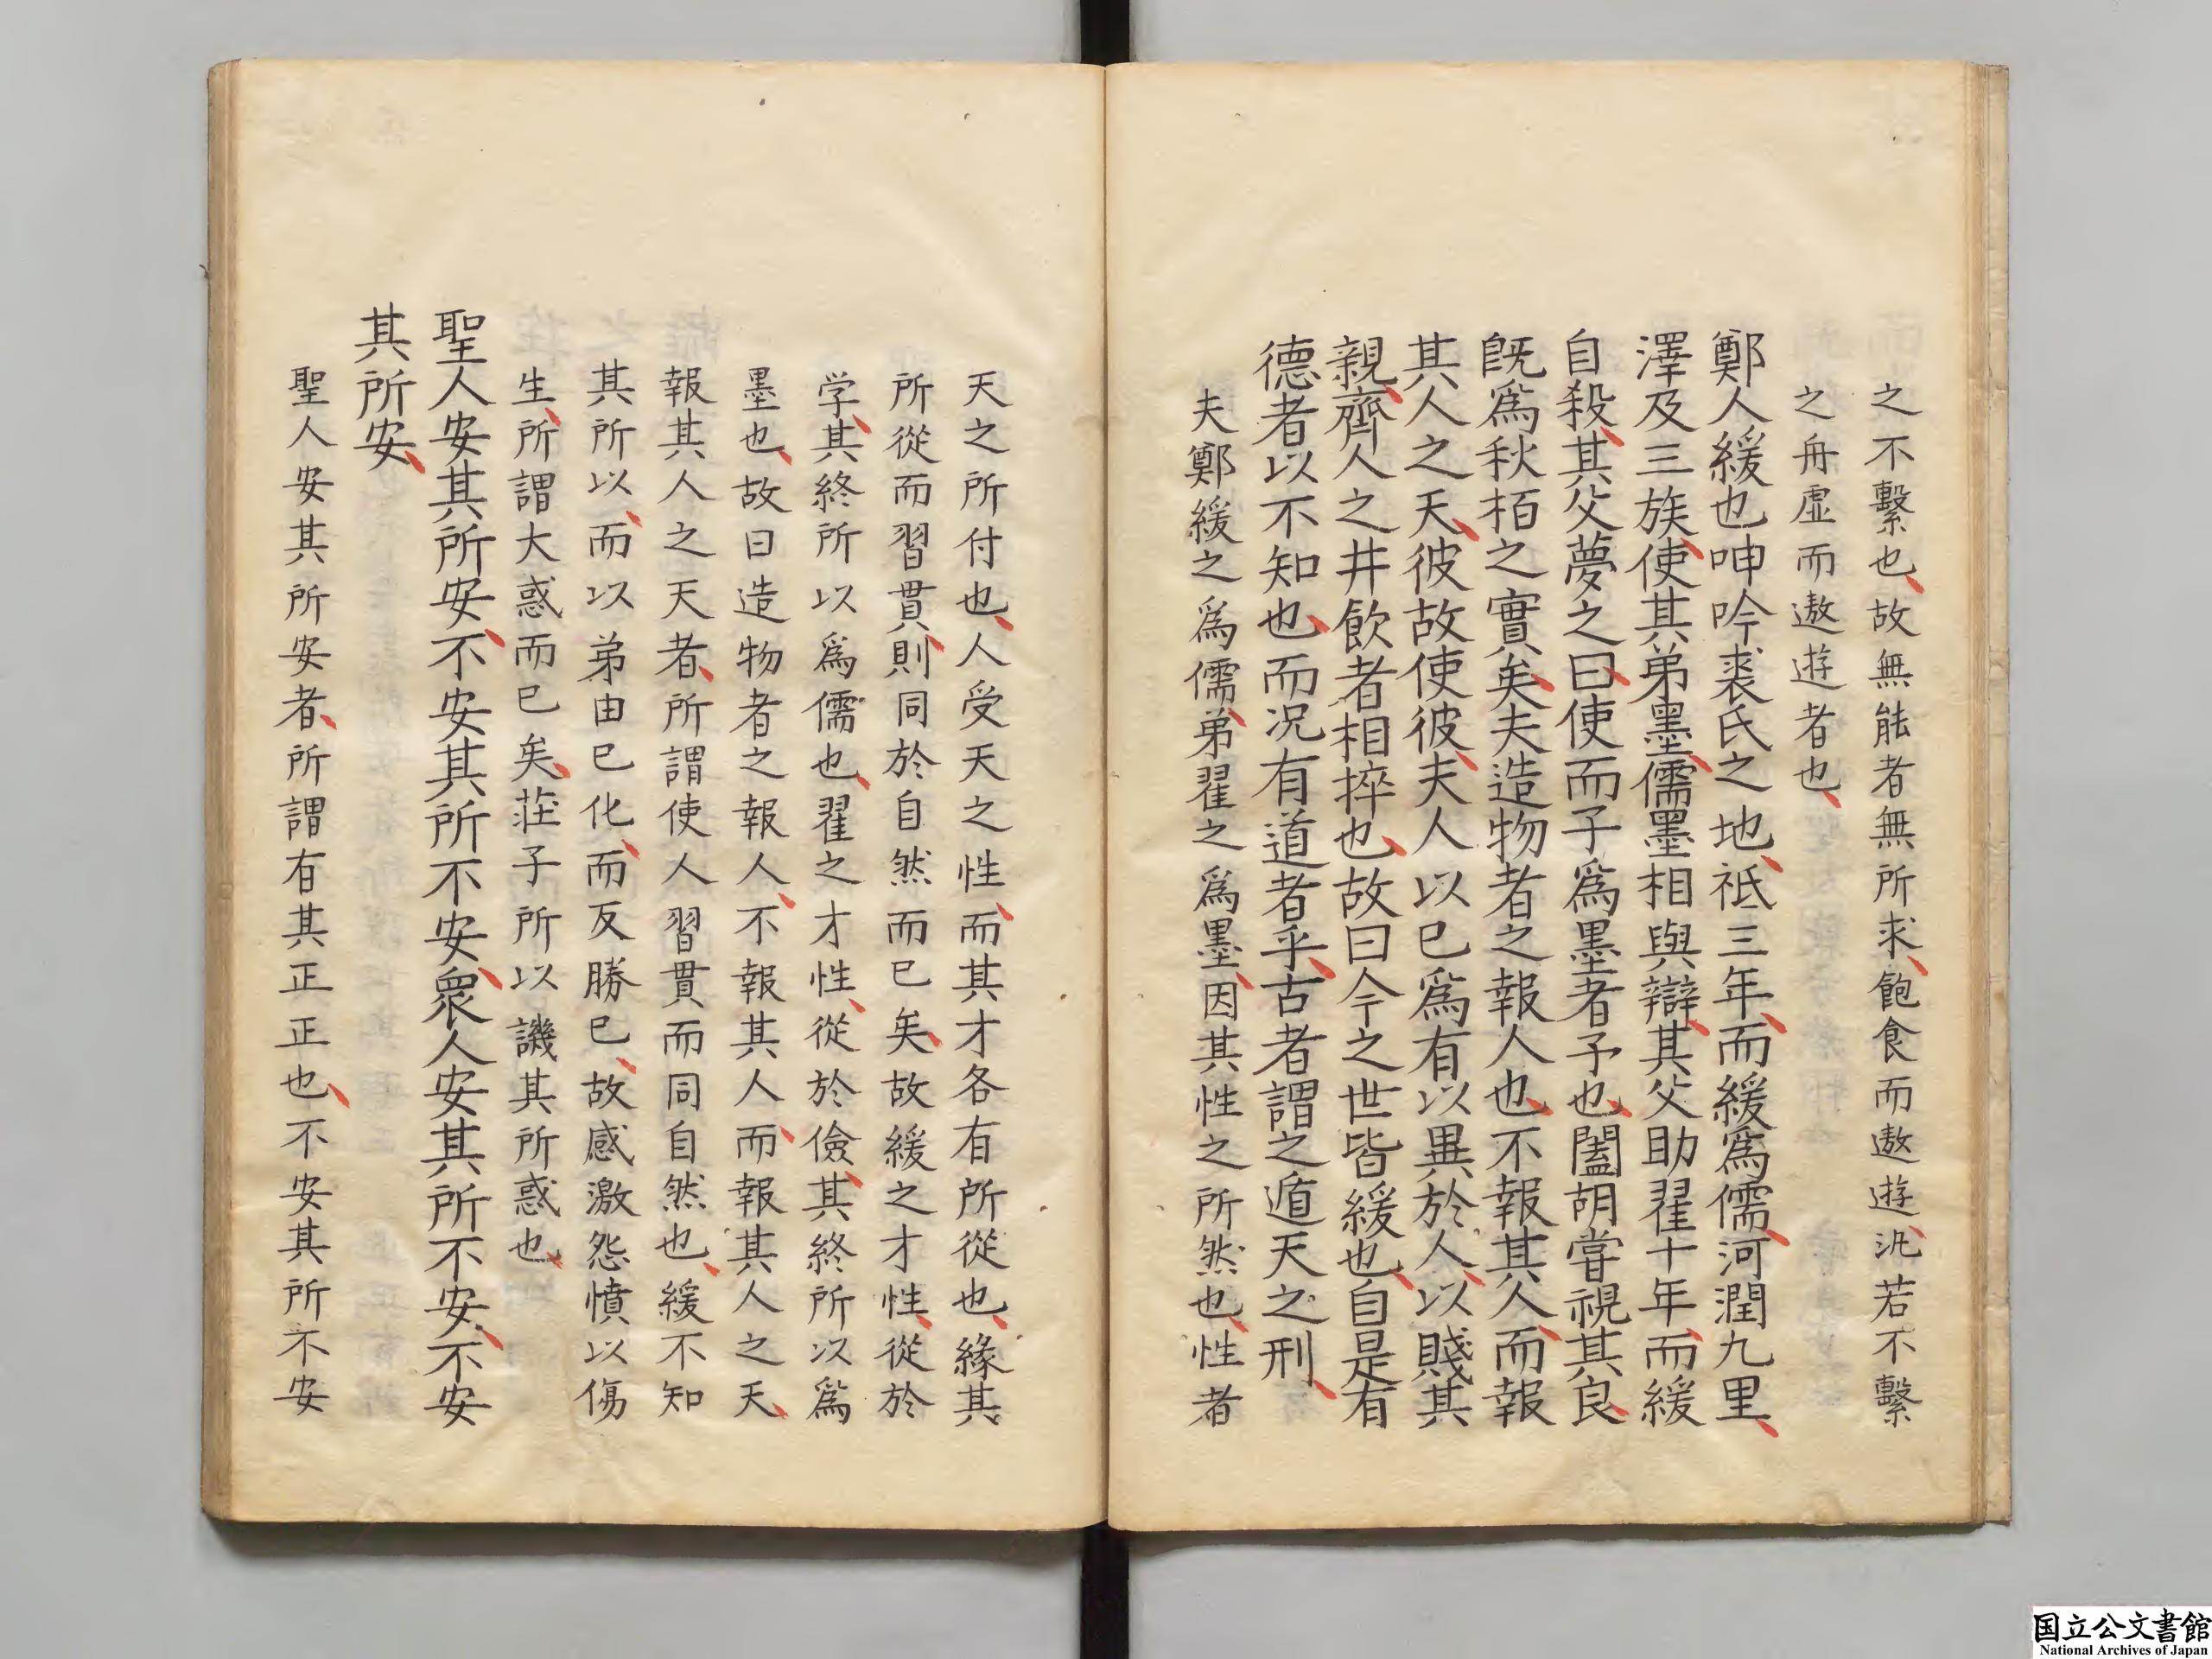 之不繫也故無能者無所求飽食而遨遊汎若不繫
之舟虛而遨遊者也
鄭人緩也呻吟裘氏之地祗三年而緩爲儒河潤九里
澤及三族使其弟墨儒墨相與辯其父助翟十年而緩
自殺其父夢之曰使而子爲墨者予也闔胡嘗視其良
既爲秋栢之實矣夫造物者之報人也不報其人而報
其人之天彼故使彼夫人以已爲有以異於人以賤其
親齊人之井飲者相捽也故曰今之世皆緩也自是有
德者以不知也而况有道者乎古者謂之遁天之刑
夫鄭緩之爲儒弟翟之爲墨因其性之所然也性者
天之所付也人受天之性而其才各有所從也緣其
所從而習貫則同於自然而已矣故緩之才性從於
学其終所以爲儒也翟之才性從於儉其終所以爲
墨也故曰造物者之報人不報其人而報其人之天
報其人之天者所謂使人習貫而同自然也緩不知
其所以而以弟由已化而反勝已故感激怨憤以傷
生所謂大惑而已矣莊子所以譏其所惑也
聖人安其所安不安其所不安衆人安其所不安不安
其所安
聖人安其所安者所謂有其正正也不安其所不安
国立公文書館
National Archives of Japan